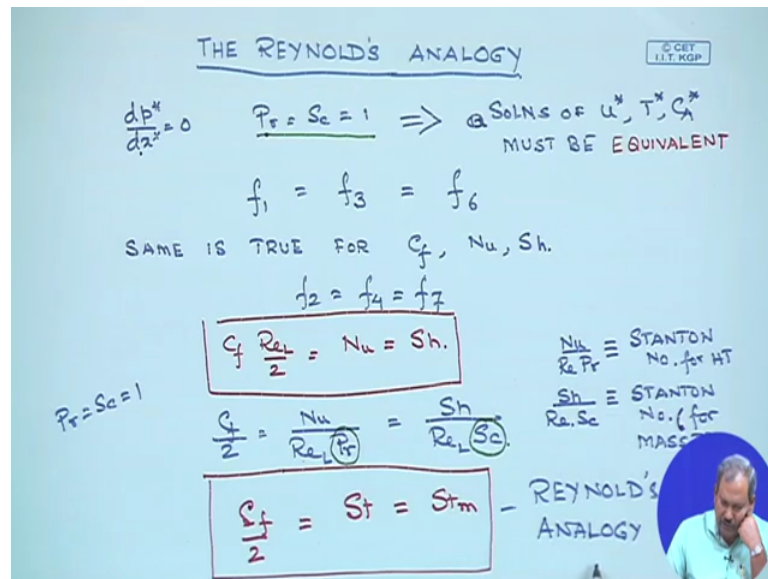 THE REYNOLD'S ANALOGY
© CET
I.I.T. KGP
dp*/dx* = 0 Pr = Sc = 1 ⇒ SOLNS OF u*, T*, C_A*
MUST BE EQUIVALENT
f₁ = f₃ = f₆
SAME IS TRUE FOR C_f, Nu, Sh.
f₂ = f₄ = f₇
C_f Re_L/2 = Nu = Sh.
Nu/Re Pr ≡ STANTON No. for HT
Pr = Sc = 1
C_f/2 = Nu/Re_L Pr = Sh/Re_L Sc.
Sh/Re.Sc ≡ STANTON No. for MASS
C_f/2 = St = St_m - REYNOLD'S
ANALOGY